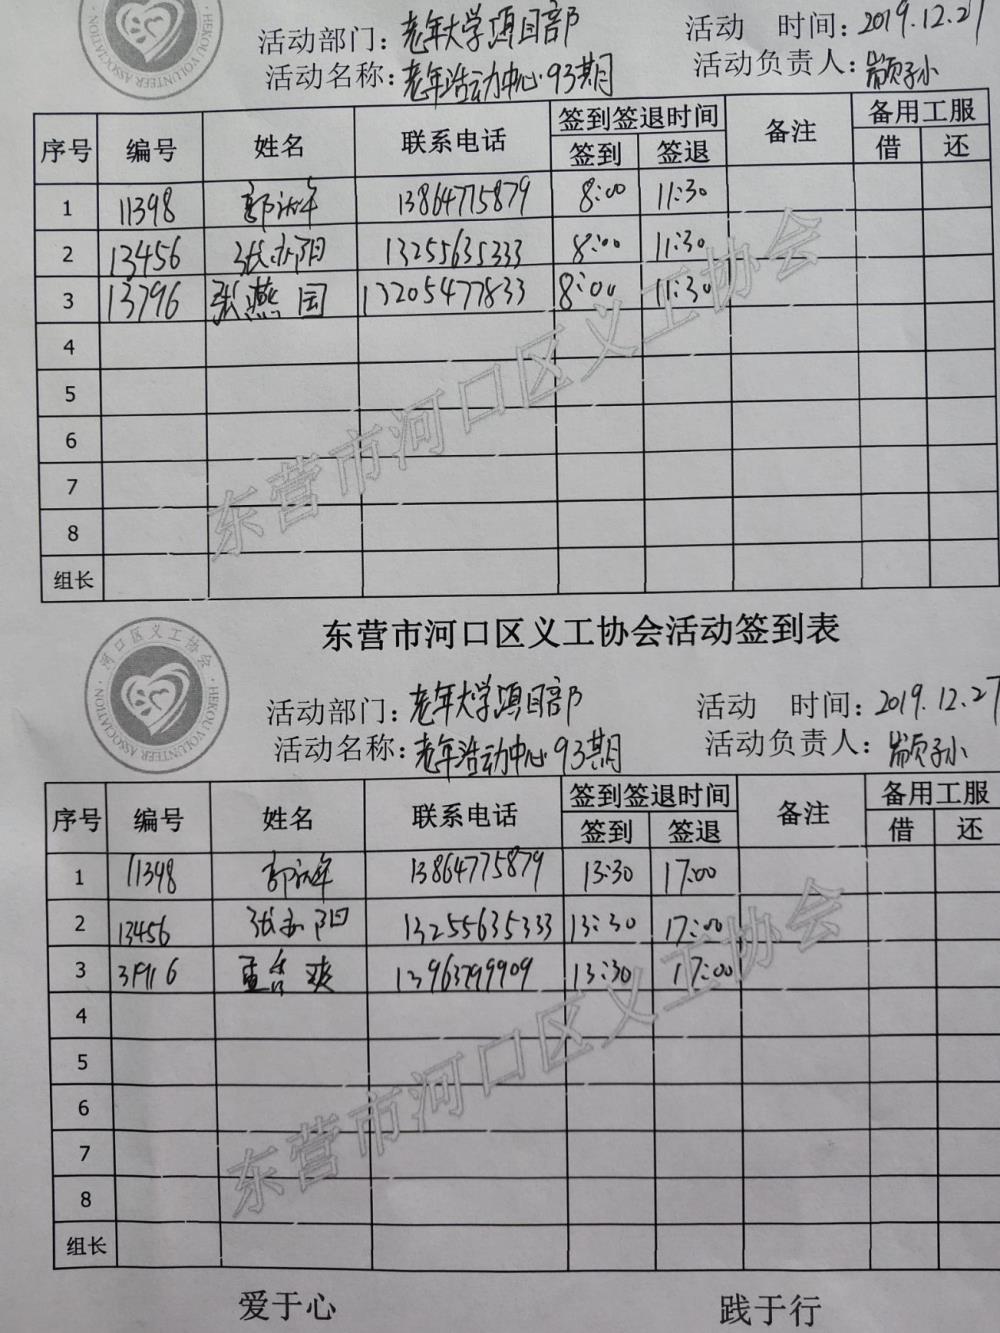 HEKOU VOLUNTEER ASSOCIATION
活动部门：老年大学项目部 活动 时间：2019.12.27
活动名称：老年活动中心93期 活动负责人：
序号 编号 姓名 联系电话 签到签退时间 备注 备用工服
签到 签退 借 还
1 11398 13864775879 8:00 11:30
2 13456 张 阳 13255635333 8:00 11:30
3 13796 张燕园 13205477833 8:00 11:30
4
5
6
7
8
组长
东营市河口区义工协会
东营市河口区义工协会活动签到表
河口区义工协会
HEKOU VOLUNTEER ASSOCIATION
活动部门：老年大学项目部 活动 时间：2019.12.27
活动名称：老年活动中心93期 活动负责人：
序号 编号 姓名 联系电话 签到签退时间 备注 备用工服
签到 签退 借 还
1 11398 13864775879 13:30 17:00
2 13456 张 阳 13255635333 13:30 17:00
3 13963799909 13:30 17:00
4
5
6
7
8
组长
东营市河口区义工协会
爱于心 践于行